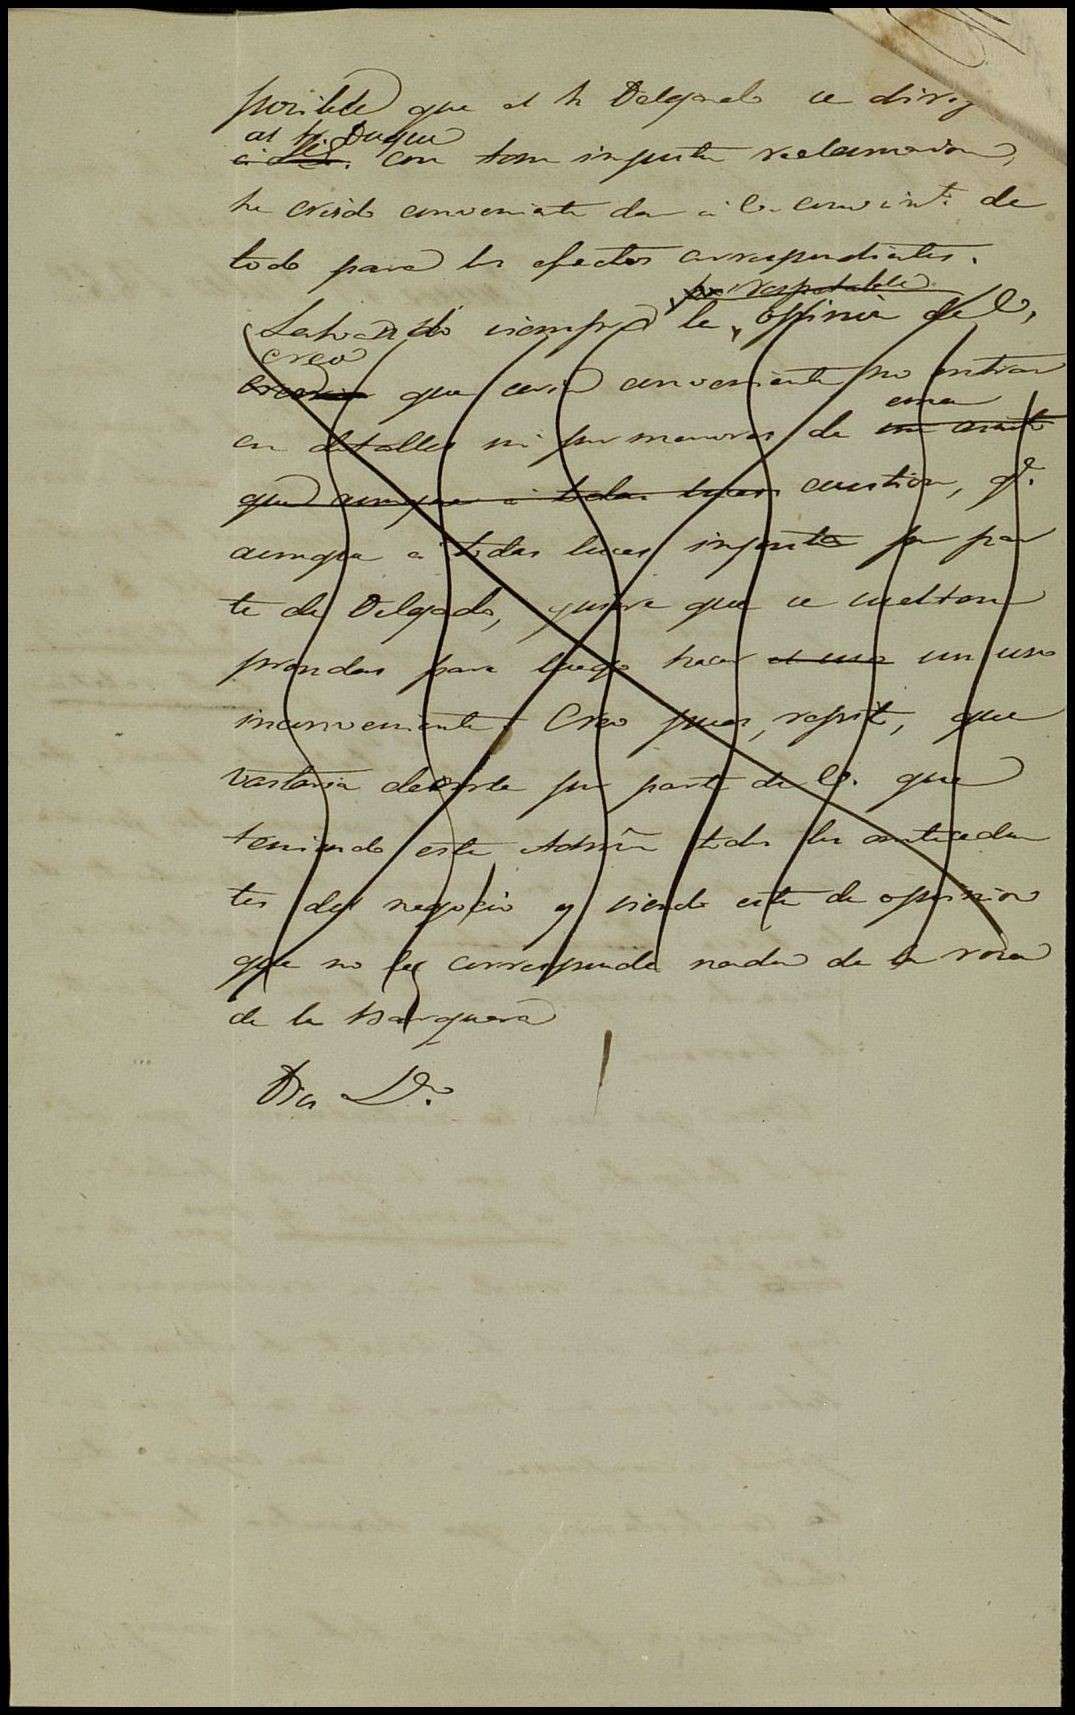 posible que el Sr Delgado se dirij
al Sr Duque
con tan injusta reclamacion,
he creido conveniente dar á V. conocimto. de
todo para los efectos correspondientes.
respetable
Salvando siempre la opinion de V,
creo
que seria conveniente no entrar
una
en detalles ni pormenores de
que aunque á todas luces cuestion, q.e
aunque á todas luces injusta por par
te de Delgado, quiere que se suelten
prendas para luego hacer el uso un uso
inconveniente. Creo pues, repito, que
vastaria decirle por parte de V. que
teniendo esta Admon todos los anteceden
tes del negocio y siendo esta de opinion
que no le corresponde nada de la roza
de la Barquera
Dios D.